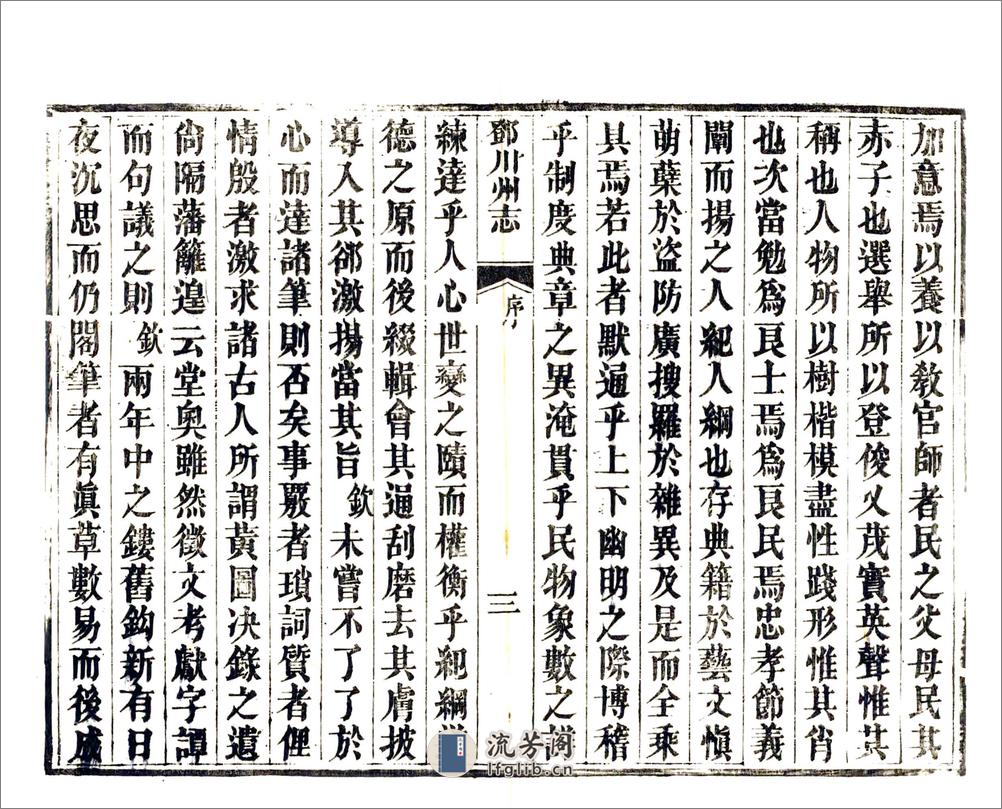 加意焉以養以敎官師者民之父母民其
赤子也選舉所以登俊乂茂實英聲惟其
稱也人物所以樹楷模盡性踐形惟其肖
也次當勉爲良士焉爲良民焉忠孝節義
闡而揚之人紀人綱也存典籍於藝文愼
萌蘖於盜防廣搜羅於雜異及是而全乘
具焉若此者默通乎上下幽明之際博稽
乎制度典章之異淹貫乎民物象數之
鄧川州志
序
三
練達乎人心世變之賾而權衡乎紀綱
德之原而後綴輯會其通刮磨去其膚披
導入其郤激揚當其旨欽未嘗不了了於
心而達諸筆則否矣事覈者瑣詞質者俚
情殷者激求諸古人所謂黃圖决錄之遺
尙隔藩籬遑云堂奧雖然徵文考獻字譚
而句議之則欽兩年中之鏤舊鈎新有日
夜沉思而仍閣筆者有眞草數易而後成
流芳閣
lfglib.cn